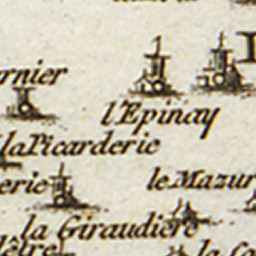 rnier
l'Epinay
la Picarderie
erie
le Mazur
la Giraudiere